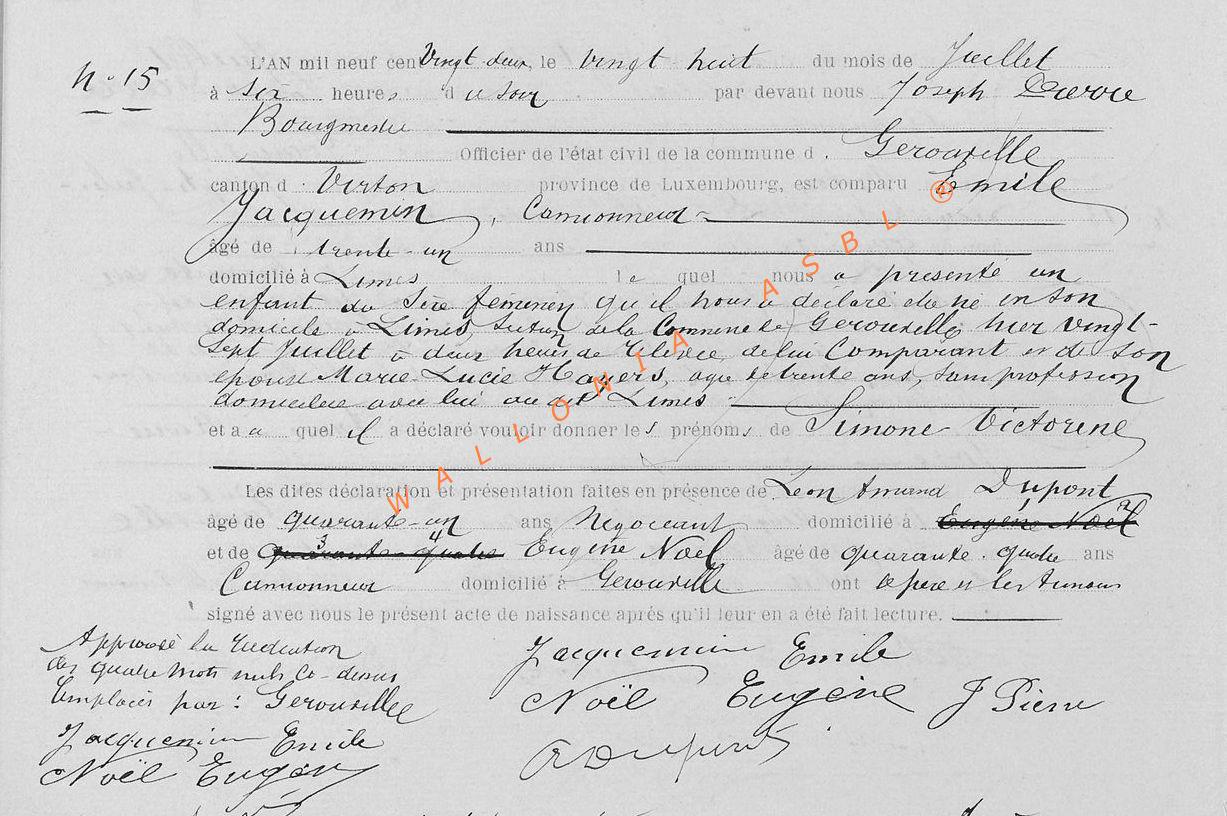 N° 15
L'AN mil neuf cent Vingt-deux, le vingt huit du mois de Juillet
à six heures du soir par devant nous Joseph Pierre
Bourgmestre
Officier de l'état civil de la commune d. Gerouville
canton d. Virton province de Luxembourg, est comparu Emile
Jacquemin, Camionneur
âgé de trente-un ans
domicilié à Limes lequel nous a présenté un
enfant du Sexe féminin qu'il nous a déclaré être né en son
domicile à Limes, Section de la Commune de Gerouville, hier vingt-
sept Juillet à deux heures de relevée, de lui Comparant et de son
épouse Marie-Lucie Hayers, âgée de trente ans, sans profession
domiciliée avec lui au dit Limes
et a auquel il a déclaré vouloir donner les prénoms de Simone-Victorine
Les dites déclaration et présentation faites en présence de Léon Armand Dupont
âgé de quarante-un ans Négociant domicilié à Eugène Noël
et de quarante-quatre Eugène Noël âgé de quarante-quatre ans
Camionneur domicilié à Gerouville ont le père et les témoins
signé avec nous le présent acte de naissance après qu'il leur en a été fait lecture.
Approuvé la
des quatre mots nuls ci-dessus
Remplacés par: Gerouville
Jacquemin Emile
Noël Eugène
Jacquemin Emile
Noël Eugène J Pierre
A Dupont
WALLONIA ASBL ®